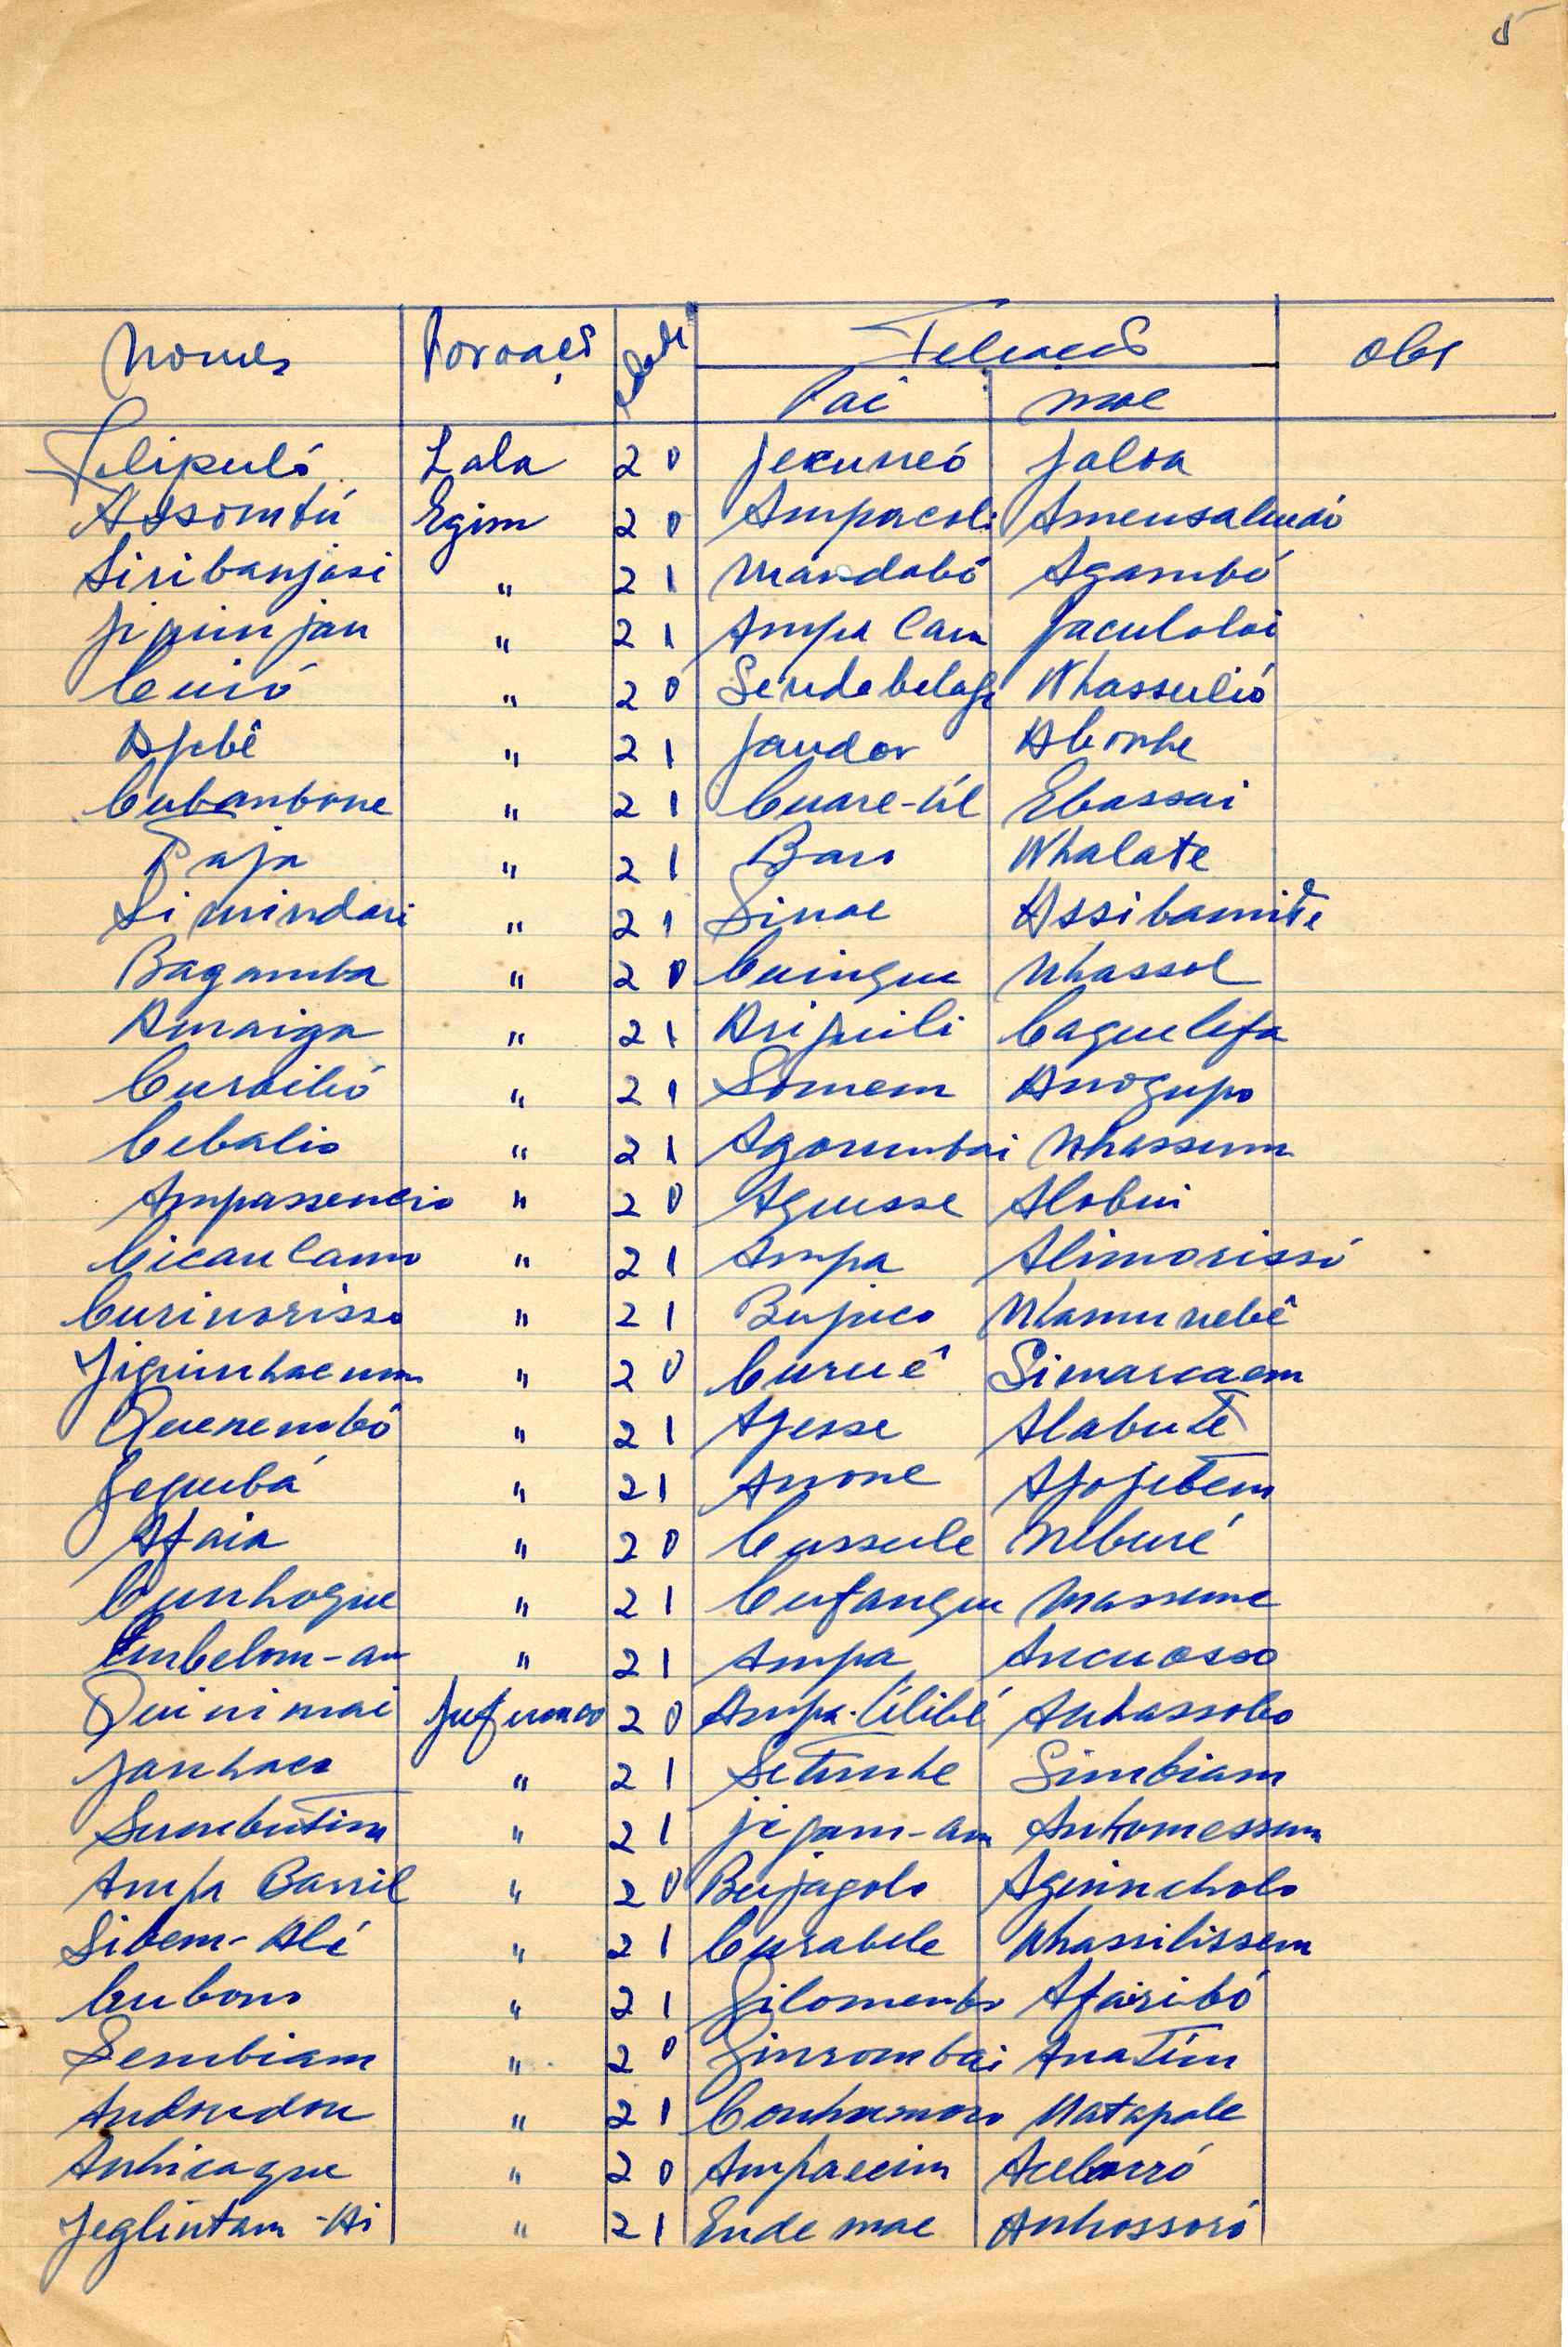 5
Nomes Povoação Idade Feliação Obs
Pai mae
Felipuló Lala 20 Jecuneó Jaloa
Assomtú Egim 20 Ampacoli Amensaludó
Siribanjasi " 21 Mandabó Agambó
Jiquinjan " 21 Ampa Cam Jaculoloi
Cuió " 20 Nhassulió
Apebê " 21 Jaudor Abonhe
Cubanbone " 21 Cuare-úl Ebassai
Paja " 21 Baro Nhalate
Simindari " 21 Sinae Assibamite
Bagamba " 20 Cuingue Nhassol
Amaiga " 21 Aripuili Caguelefa
Curoilió " 21 Somem Anogupo
Cebalio " 21 Agorumbai Nhassum
Ampassencio " 20 Agusse Alobui
Cicaulamo " 21 Ampa Alimorissó
Curinorisso " 21 Bupico Nhamunebê
Jiquinhaenum " 20 Curuê Simarcaem
Quenembó " 21 Ajesse Alabute
Jequbá " 21 Anone Ajojetem
Afaia " 20 Cussule Neburé
Cunhogue " 21 Cufangue Massume
Embelom-an " 21 Ampa Ancuosso
Quinimai 20 Ampa-Úlibé Anhassobo
Janhaco " 21 Setunhe Simbiam
Sumbutim " 21 Jipam-am Antomessum
Ampa Barril " 20 Bujagolo Aguincholo
Sibem-Alé " 21 Curabele Nhassilissem
Cubono " 21 Jilomenbo Afairibó
Sembiam " 20 Jinrombai Anatim
Andondon " 21 Conhamoro Natapale
Anhicague " 20 Ampaecim Aceborró
Jeglintam-Ai " 21 Ende mae Anhossoró